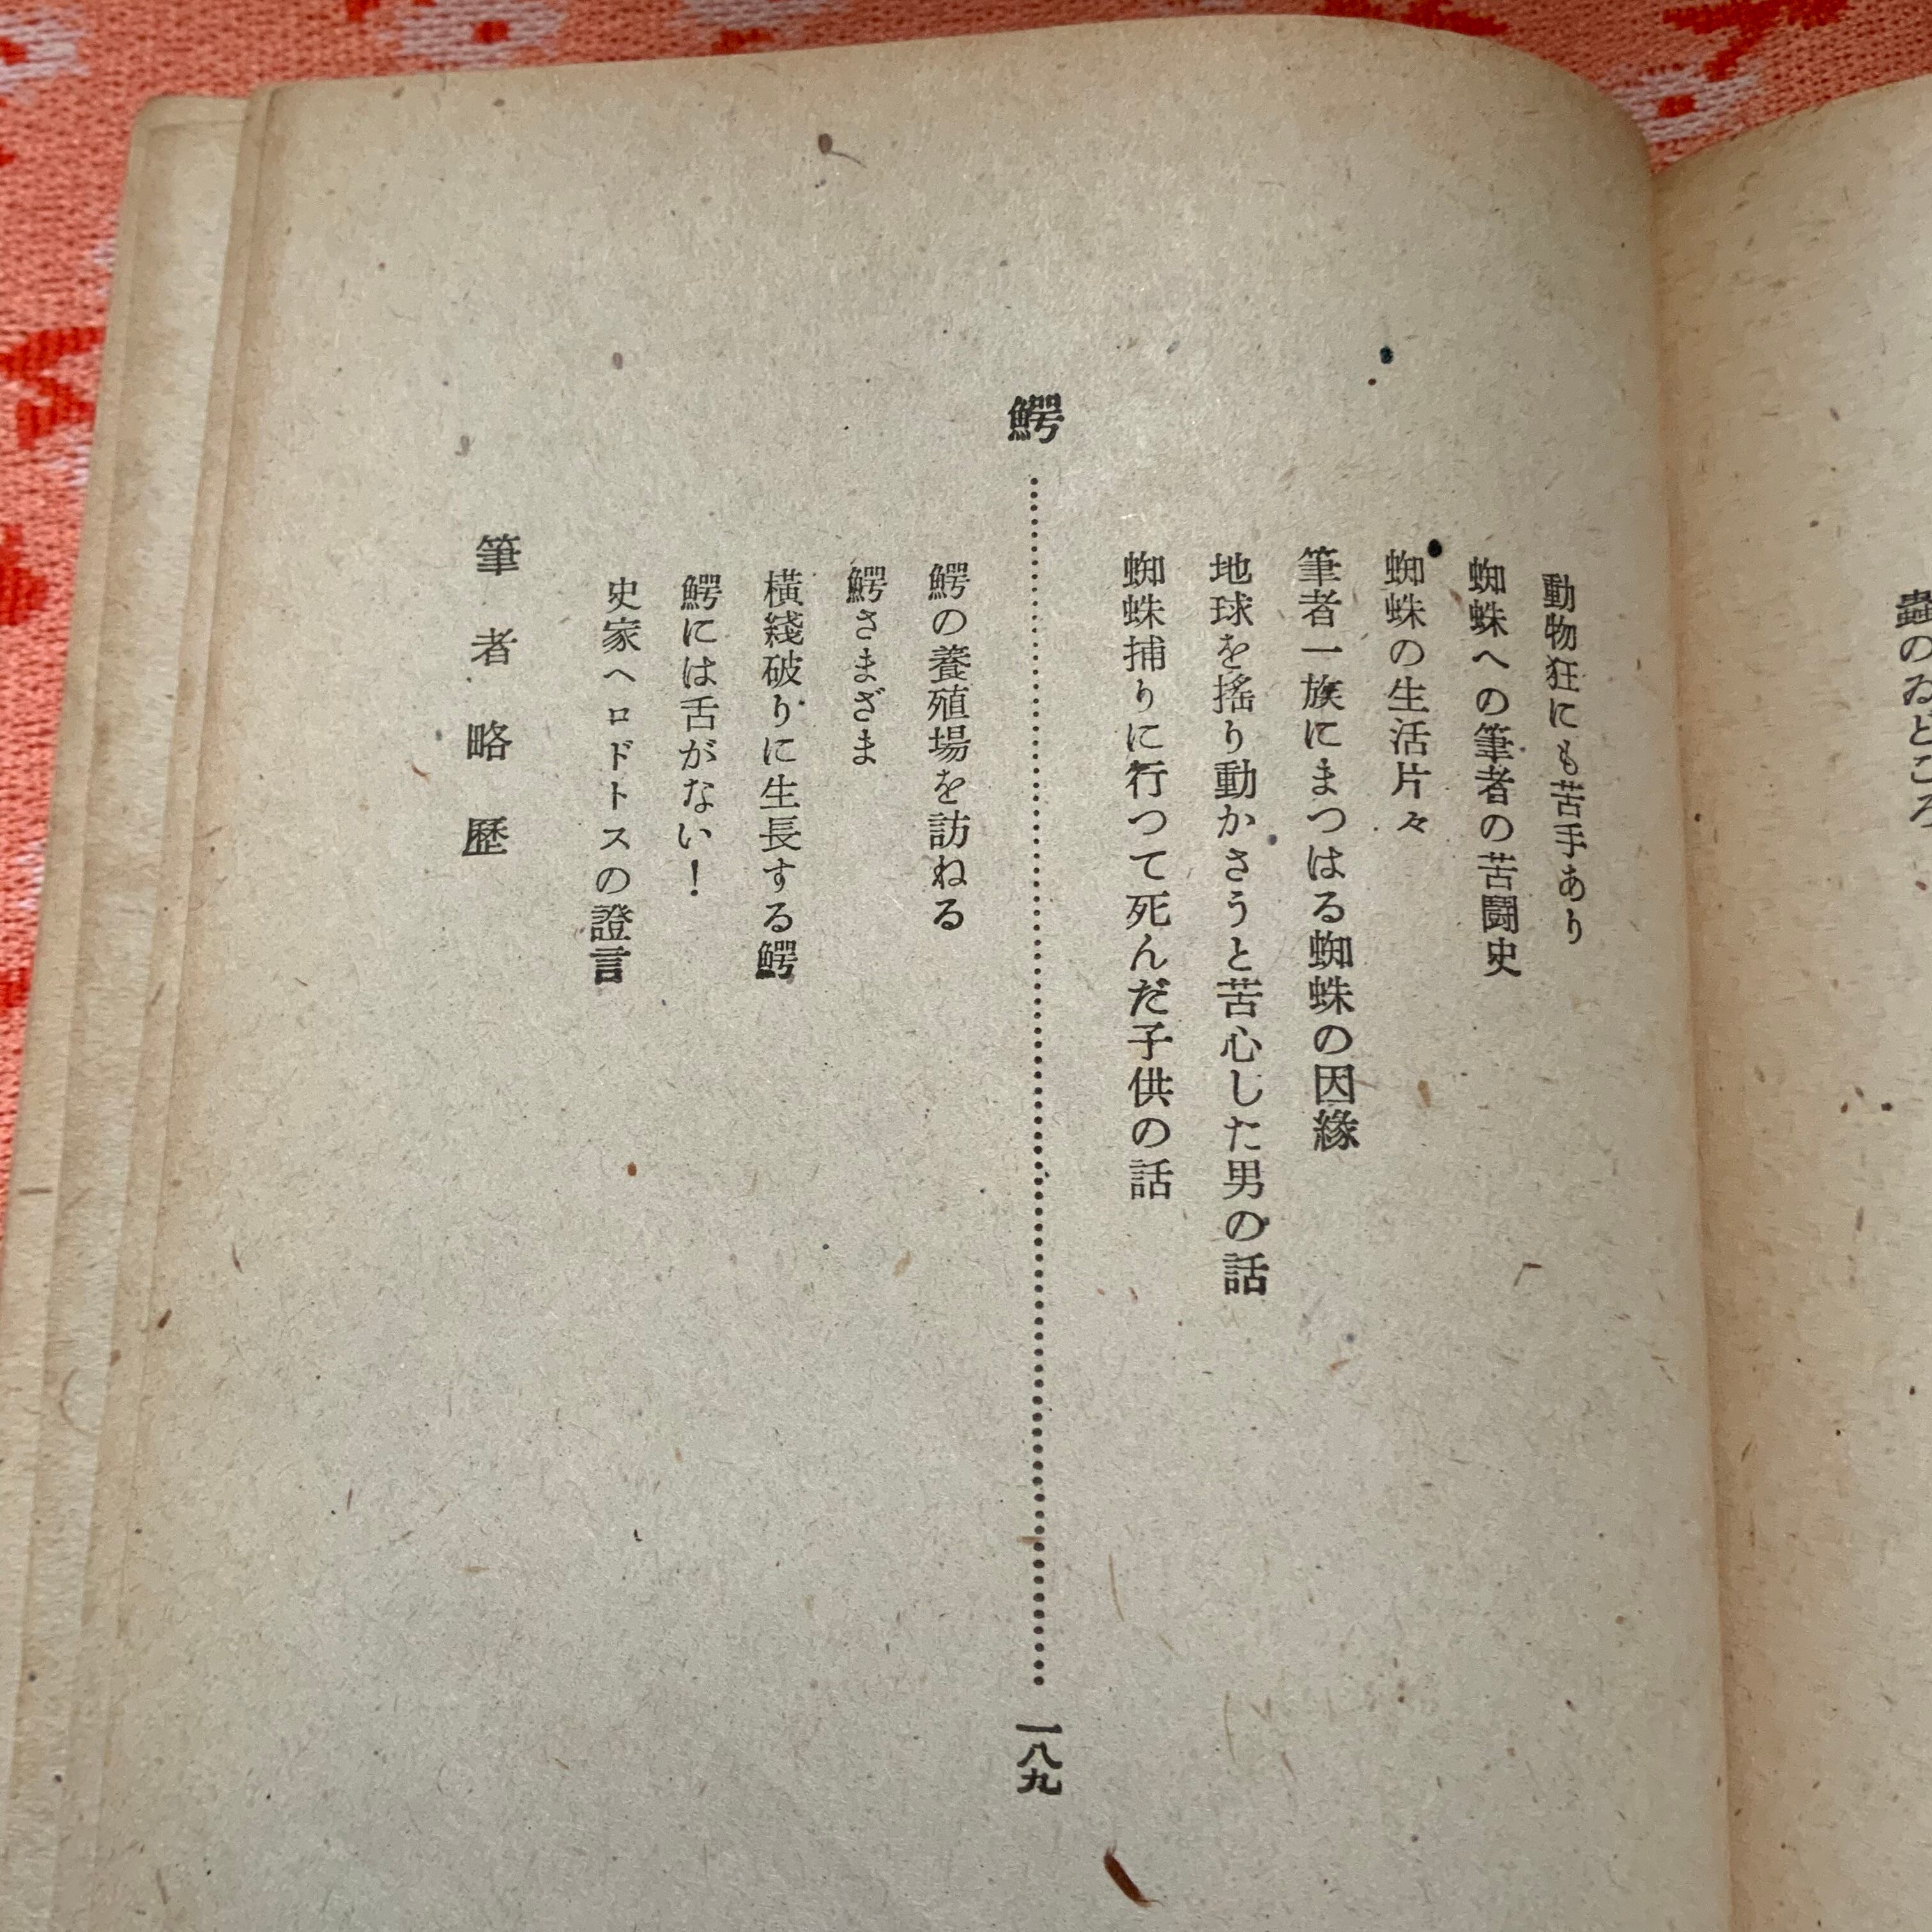 蟲のゐどころ
動物狂にも苦手あり
蜘蛛への筆者の苦闘史
蜘蛛の生活片々
筆者一族にまつはる蜘蛛の因縁
地球を搖り動かさうと苦心した男の話
蜘蛛捕りに行つて死んだ子供の話
鰐……………………………………一八九
鰐の養殖場を訪ねる
鰐さまざま
横綫破りに生長する鰐
鰐には舌がない！
史家ヘロドトスの證言
筆者略歷